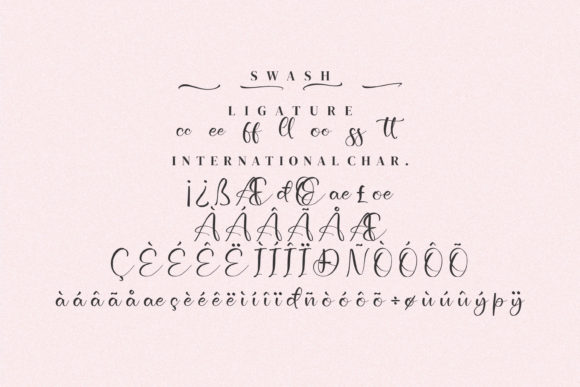 SWASH
LIGATURE
cc ee ff ll oo ss tt
INTERNATIONAL CHAR.
¡¿ßÆđŒae£oe
ÀÁÂÃÅÆ
ÇÈÉÊËÌÍÎÏÐÑÒÓÔÕ
àáâãåaeçèéêëìíîïđñòóôõ÷øùúûýþÿ